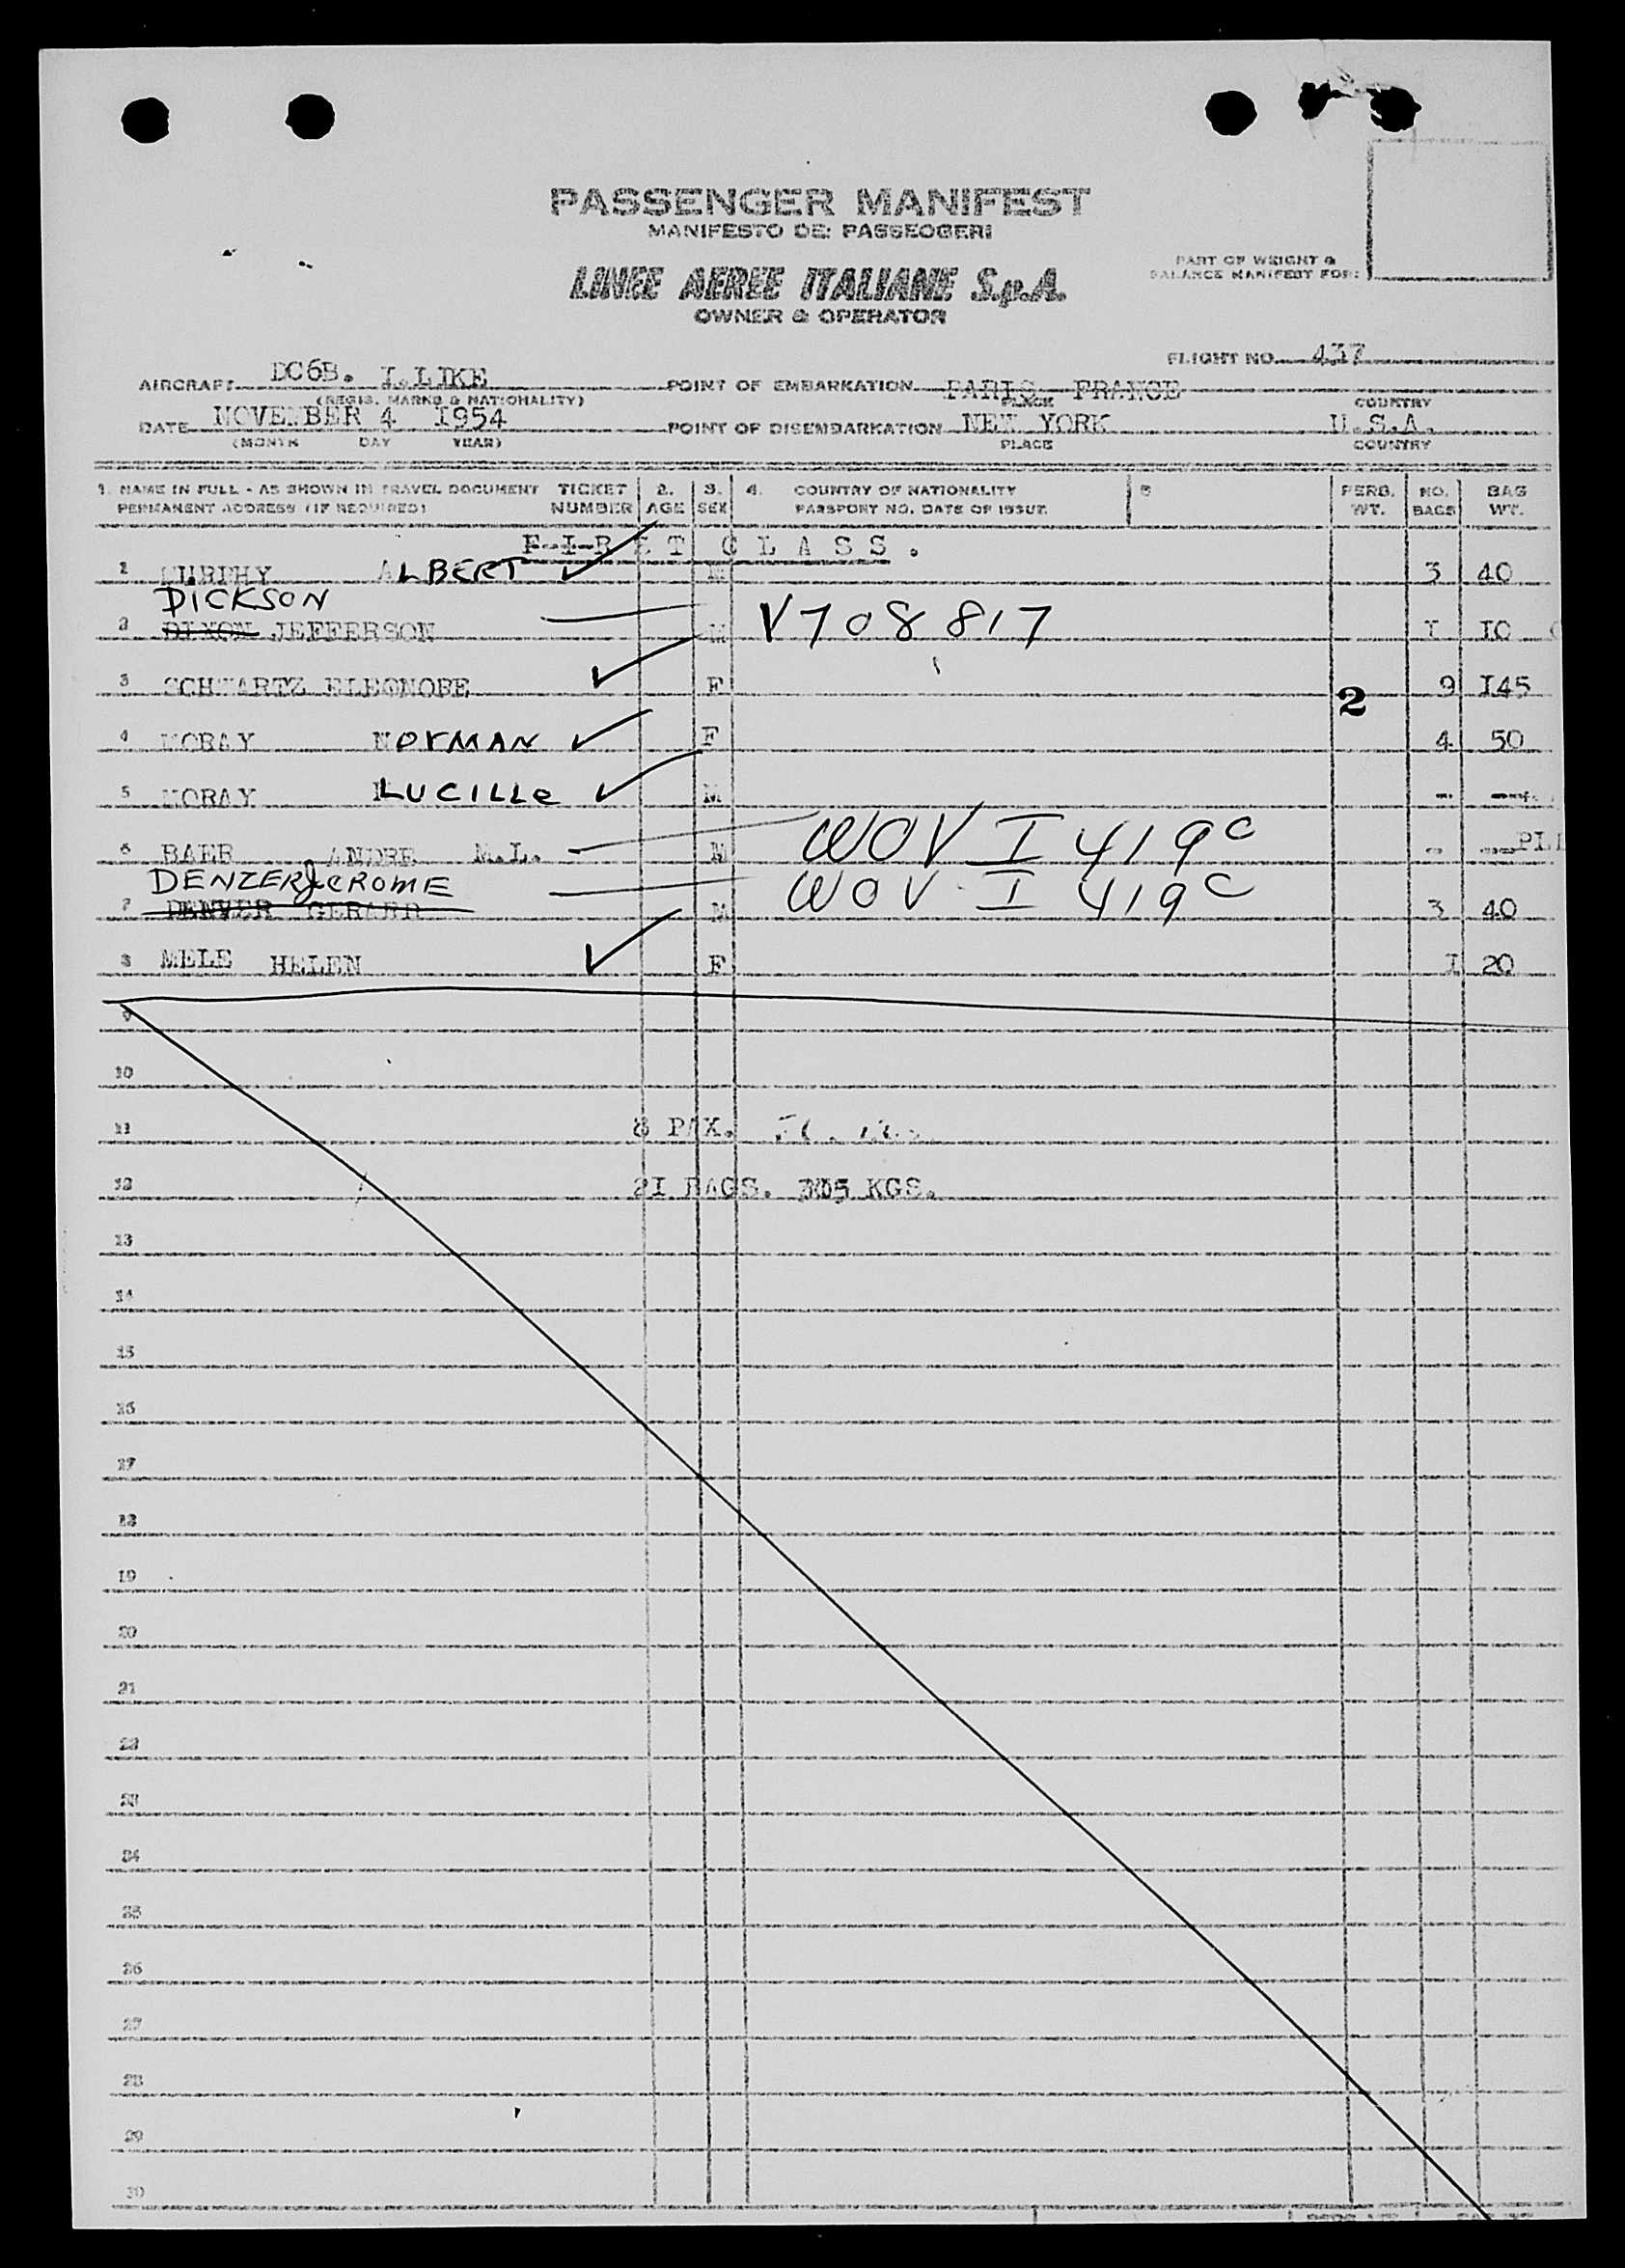 PASSENGER MANIFEST
MANIFESTO DEI PASSEGGERI
LINEE AEREE ITALIANE S.p.A.
OWNER & OPERATOR
PART OF WEIGHT &
BALANCE MANIFEST FOR:
FLIGHT NO. 437
AIRCRAFT DC6B. I.LIKE POINT OF EMBARKATION PARIS FRANCE
(REGIS. MARKS & NATIONALITY) PLACE COUNTRY
DATE NOVEMBER 4 I954 POINT OF DISEMBARKATION NEW YORK U.S.A.
(MONTH DAY YEAR) PLACE COUNTRY
1. NAME IN FULL - AS SHOWN IN TRAVEL DOCUMENT TICKET 2. 3. 4. COUNTRY OF NATIONALITY 5 PERS. NO. BAG
PERMANENT ADDRESS (IF REQUIRED) NUMBER AGE SEX PASSPORT NO. DATE OF ISSUE WT. BAGS WT.
F I R S T C L A S S .
1 MURPHY ALBERT ✓ M 3 40
DICKSON
2 DIXON JEFFERSON M V708817 I I0
3 SCHWARTZ ELEONORE ✓ F 9 I45
2
4 MORAY NORMAN ✓ F 4 50
5 MORAY LUCILLE ✓ M - -
6 BAER ANDRE M.L. M WOV I 419C - -
DENZER JEROME WOV I 419C
7 DENVER GERARD M 3 40
8 MELE HELEN ✓ F I 20
9
10
11 8 PAX.
12 2I BAGS. 305 KGS.
13
14
15
16
17
18
19
20
21
22
23
24
25
26
27
28
29
30